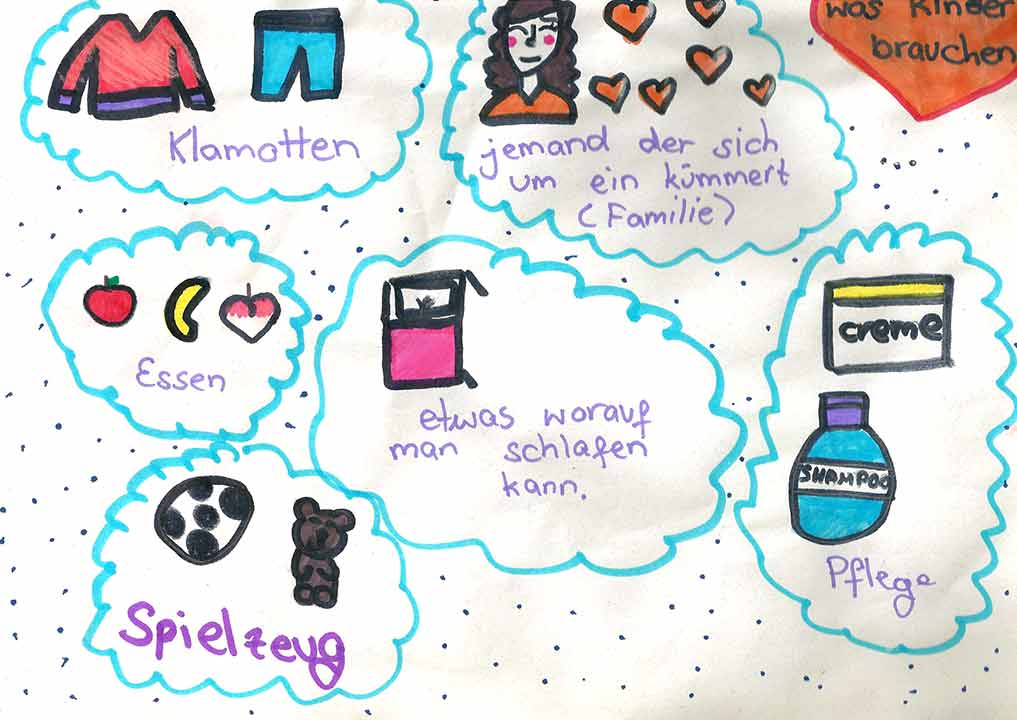 was Kinder
brauchen
Klamotten
jemand der sich
um ein kümmert
(Familie)
Essen
etwas worauf
man schlafen
kann.
creme
SHAMPOO
Pflege
Spielzeug